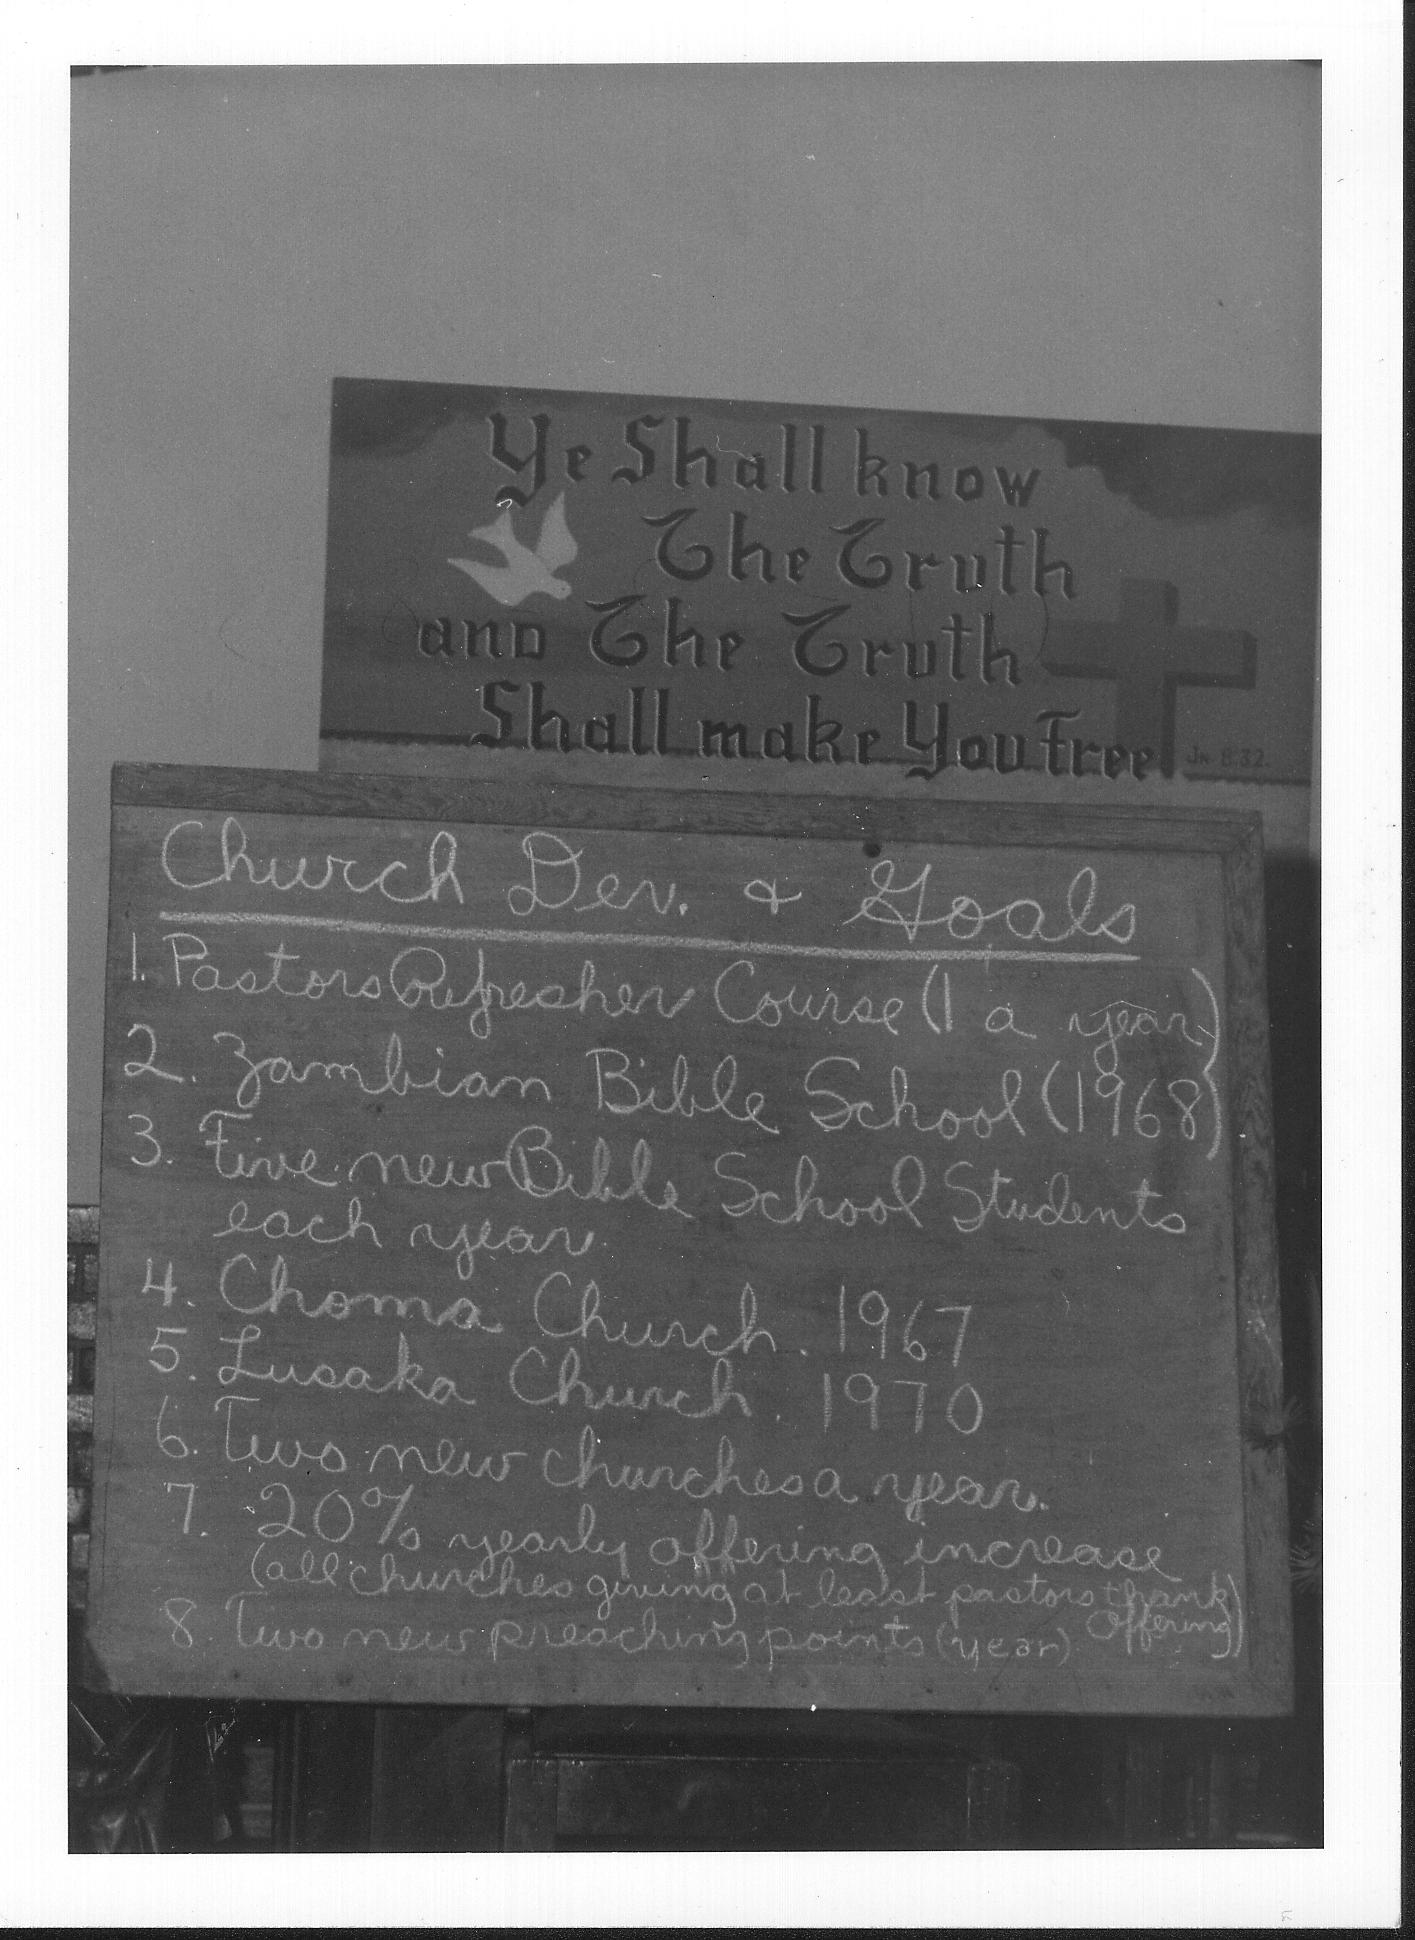 Ye Shall know
The Truth
and The Truth
Shall make You Free
Jn. 8:32.
Church Dev. + Goals
1. Pastors Refresher Course (1 a year)
2. Zambian Bible School (1968)
3. Five new Bible School Students
each year.
4. Choma Church. 1967
5. Lusaka Church. 1970
6. Two new churches a year.
7. 20% yearly offering increase
(all churches giving at least pastors thank
Offering)
8. Two new preaching points (year)